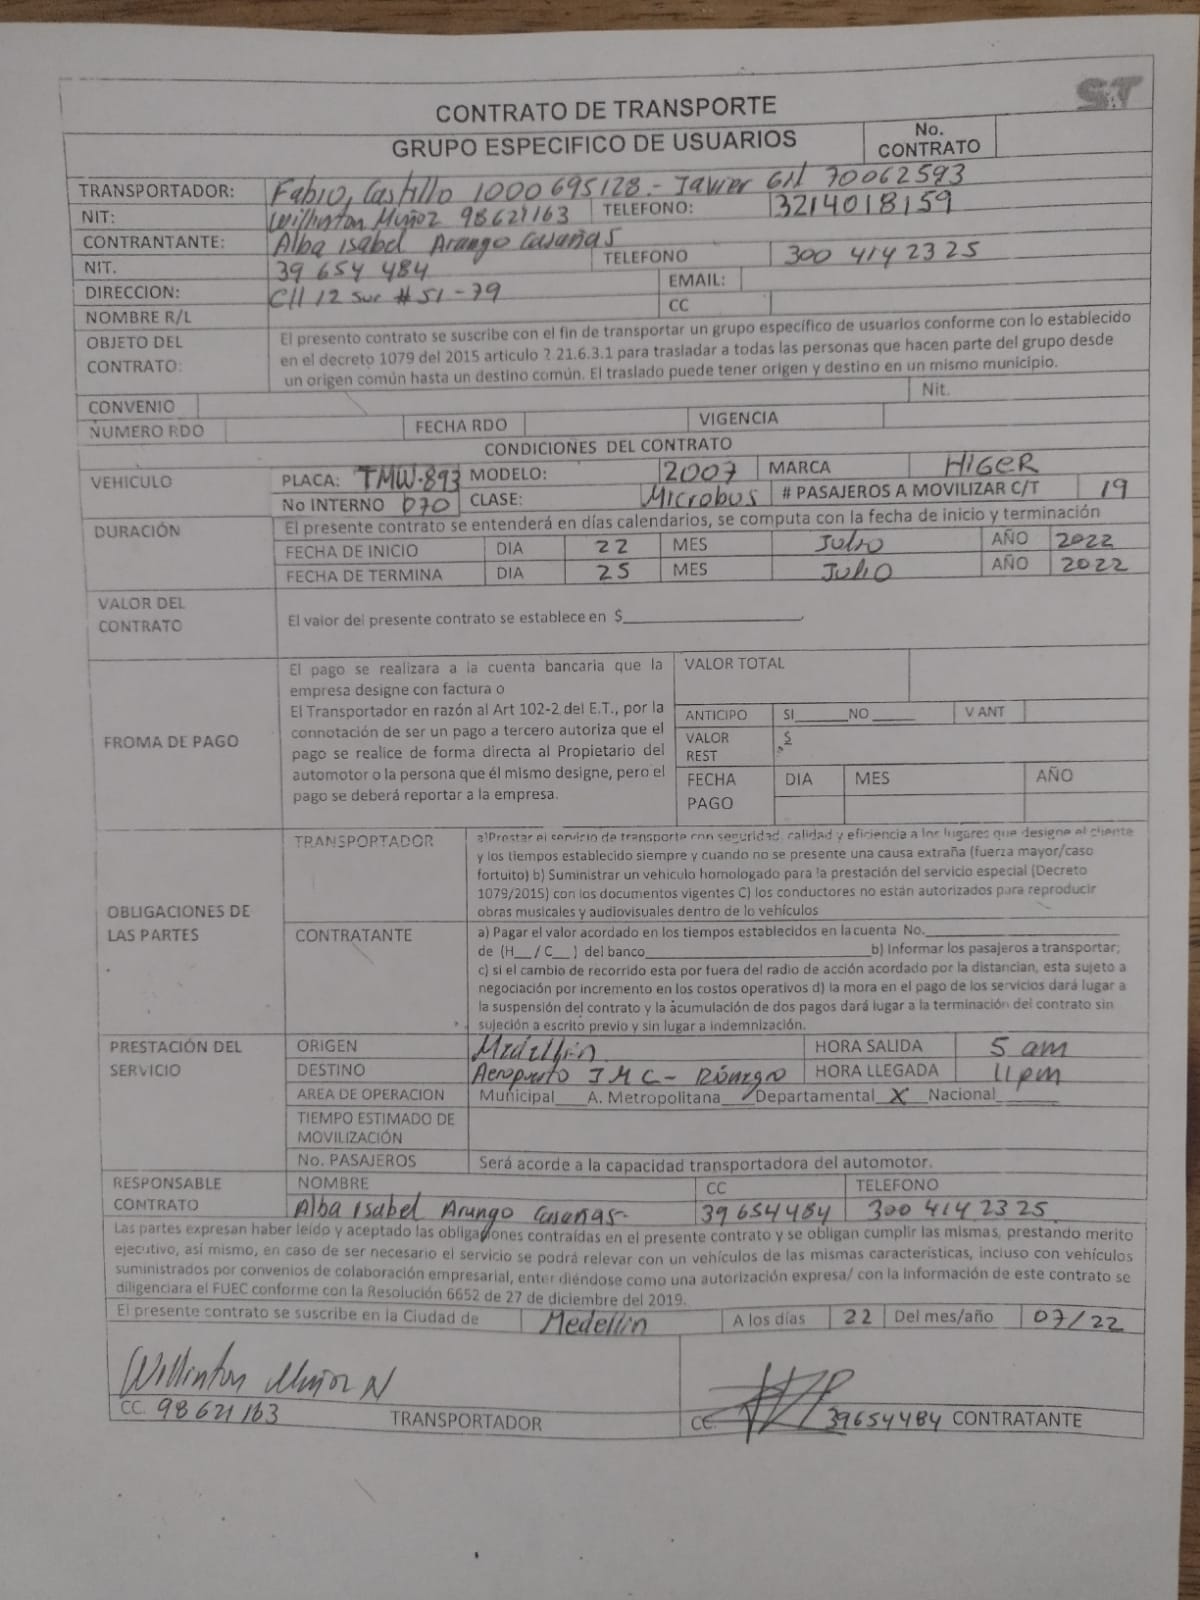 S&T
CONTRATO DE TRANSPORTE
GRUPO ESPECIFICO DE USUARIOS
No. CONTRATO
TRANSPORTADOR: Fabio, Castillo 1000695128.- Javier Gil 70062593
NIT: Willinton Muñoz 98621163 TELEFONO: 3214018159
CONTRANTANTE: Alba Isabel Arango Casañas
NIT. 39 654 484 TELEFONO 300 414 2325
DIRECCION: Cll 12 Sur # 51-79 EMAIL:
NOMBRE R/L CC
OBJETO DEL CONTRATO: El presento contrato se suscribe con el fin de transportar un grupo específico de usuarios conforme con lo establecido
en el decreto 1079 del 2015 articulo 2 21.6.3.1 para trasladar a todas las personas que hacen parte del grupo desde
un origen común hasta un destino común. El traslado puede tener origen y destino en un mismo municipio.
CONVENIO Nit.
NUMERO RDO FECHA RDO VIGENCIA
CONDICIONES DEL CONTRATO
VEHICULO PLACA: TMW-893 MODELO: 2007 MARCA HIGER
No INTERNO 070 CLASE: Microbus # PASAJEROS A MOVILIZAR C/T 19
DURACIÓN El presente contrato se entenderá en días calendarios, se computa con la fecha de inicio y terminación
FECHA DE INICIO DIA 22 MES Julio AÑO 2022
FECHA DE TERMINA DIA 25 MES Julio AÑO 2022
VALOR DEL CONTRATO El valor del presente contrato se establece en $
FROMA DE PAGO
El pago se realizara a la cuenta bancaria que la
empresa designe con factura o
El Transportador en razón al Art 102-2 del E.T., por la
connotación de ser un pago a tercero autoriza que el
pago se realice de forma directa al Propietario del
automotor o la persona que él mismo designe, pero el
pago se deberá reportar a la empresa.
VALOR TOTAL
ANTICIPO SI______NO_____ V ANT
VALOR REST $
FECHA PAGO DIA MES AÑO
OBLIGACIONES DE LAS PARTES
TRANSPORTADOR a)Prestar el servicio de transporte con seguridad, calidad y eficiencia a los lugares que designe el cliente
y los tiempos establecido siempre y cuando no se presente una causa extraña (fuerza mayor/caso
fortuito) b) Suministrar un vehiculo homologado para la prestación del servicio especial (Decreto
1079/2015) con los documentos vigentes C) los conductores no están autorizados para reproducir
obras musicales y audiovisuales dentro de lo vehículos
CONTRATANTE a) Pagar el valor acordado en los tiempos establecidos en la cuenta No.____
de (H__/ C__) del banco____b) Informar los pasajeros a transportar;
c) si el cambio de recorrido esta por fuera del radio de acción acordado por la distancian, esta sujeto a
negociación por incremento en los costos operativos d) la mora en el pago de los servicios dará lugar a
la suspensión del contrato y la acumulación de dos pagos dará lugar a la terminación del contrato sin
sujeción a escrito previo y sin lugar a indemnización.
PRESTACIÓN DEL SERVICIO
ORIGEN Medellín HORA SALIDA 5 am
DESTINO Aeropuerto J M C - Rionegro HORA LLEGADA 11pm
AREA DE OPERACION Municipal___A. Metropolitana___Departamental_X_Nacional______
TIEMPO ESTIMADO DE MOVILIZACIÓN
No. PASAJEROS Será acorde a la capacidad transportadora del automotor.
RESPONSABLE CONTRATO
NOMBRE CC TELEFONO
Alba Isabel Arango Casañas- 39654484 300 414 2325
Las partes expresan haber leído y aceptado las obligaciones contraídas en el presente contrato y se obligan cumplir las mismas, prestando merito
ejecutivo, así mismo, en caso de ser necesario el servicio se podrá relevar con un vehículos de las mismas características, incluso con vehículos
suministrados por convenios de colaboración empresarial, enter diéndose como una autorización expresa/ con la Información de este contrato se
diligenciara el FUEC conforme con la Resolución 6652 de 27 de diciembre del 2019.
El presente contrato se suscribe en la Ciudad de Medellín A los días 22 Del mes/año 07/22
Willinton Muñoz N
CC. 98621163 TRANSPORTADOR
CC. 39654484 CONTRATANTE